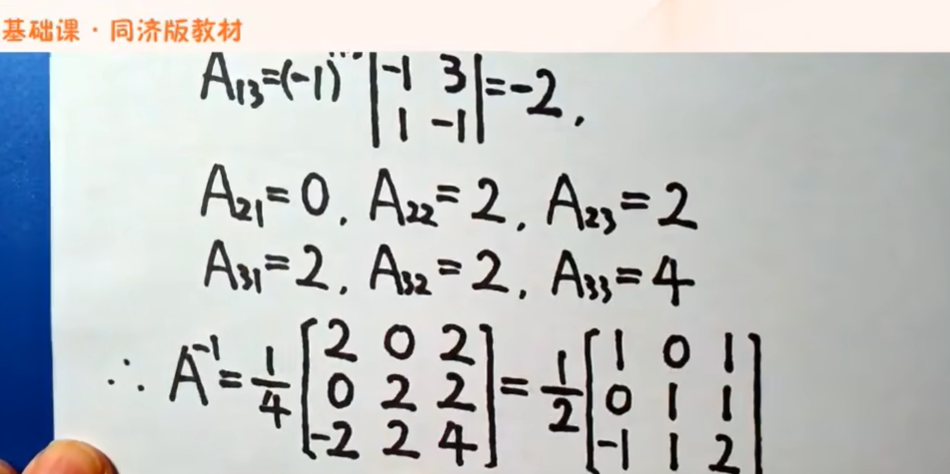 基础课·同济版教材
A₁₃=(-1) |-1 3| =-2,
|1 -1|
A₂₁=0, A₂₂=2, A₂₃=2
A₃₁=2, A₃₂=2, A₃₃=4
∴ A⁻¹= 1/4 [2 0 2; 0 2 2; -2 2 4] = 1/2 [1 0 1; 0 1 1; -1 1 2]